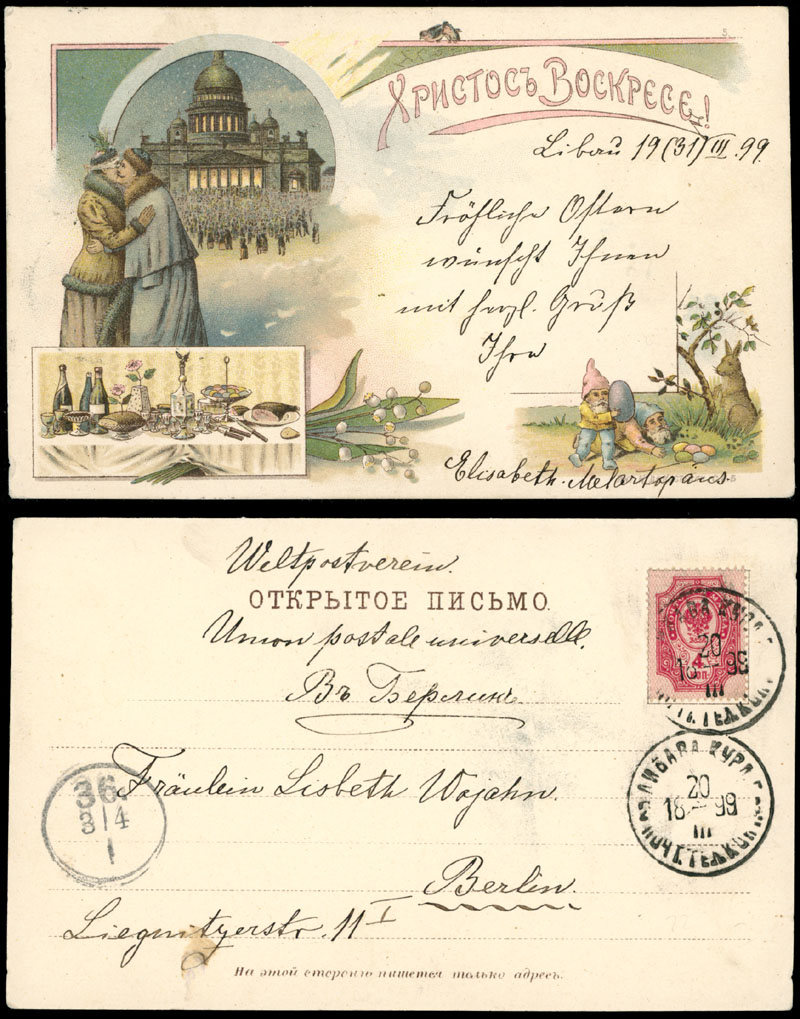 Христосъ Воскресе!
Libau 19(31) III. 99.
Fröhliche Ostern
wünscht Ihnen
mit herzl. Gruß
Ihre
Elisabeth
Weltpostverein.
ОТКРЫТОЕ ПИСЬМО.
Union postale universelle.
Въ Берлинъ
Fräulein Lisbeth Wojahn.
Berlin.
Liegnitzerstr. 11 I
На этой сторонѣ пишется только адресъ.
4
20
18 99
III
ЛИБАВА КУРЛ. Г.
20
18 99
III
ПОЧТ. ТЕЛ. КОН.
36.
3/4
1